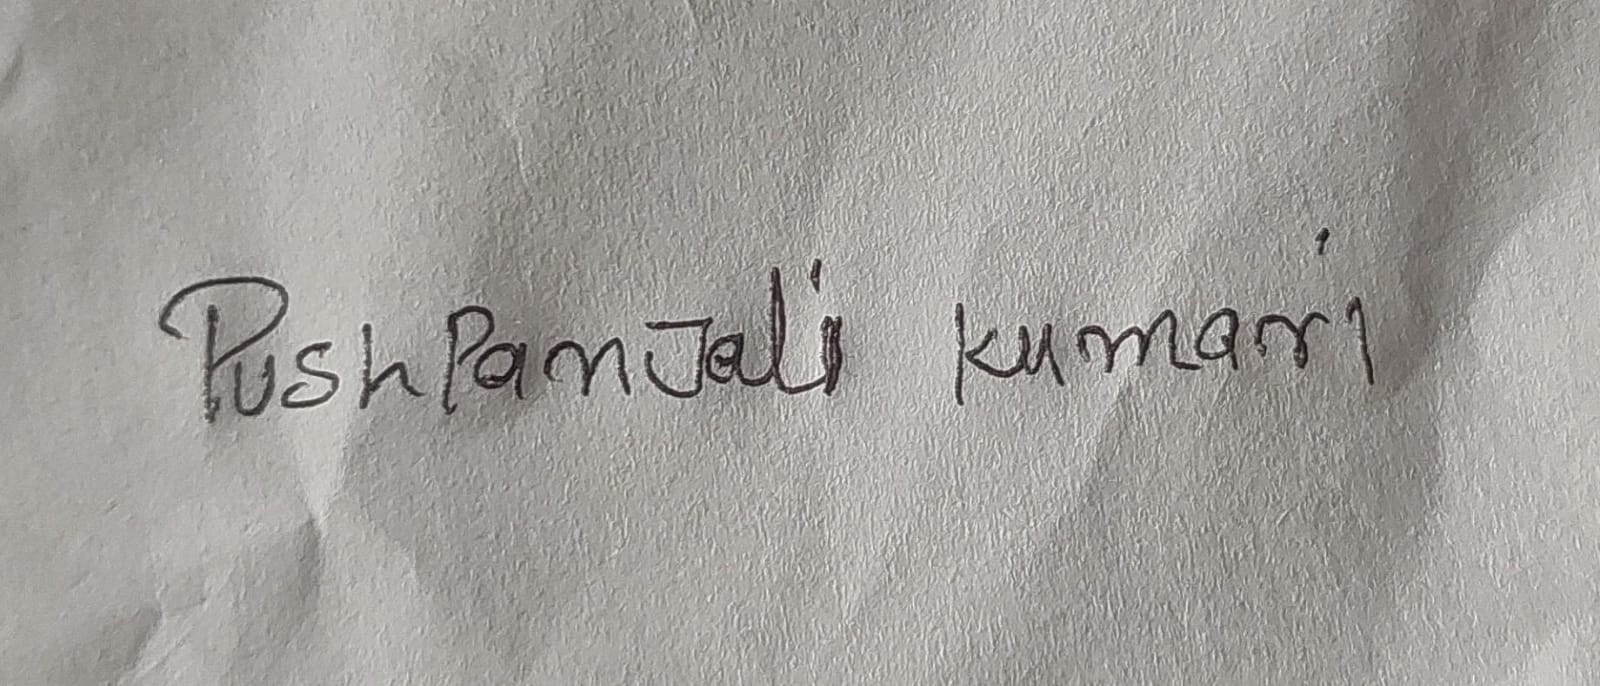 PushPanJali kumari